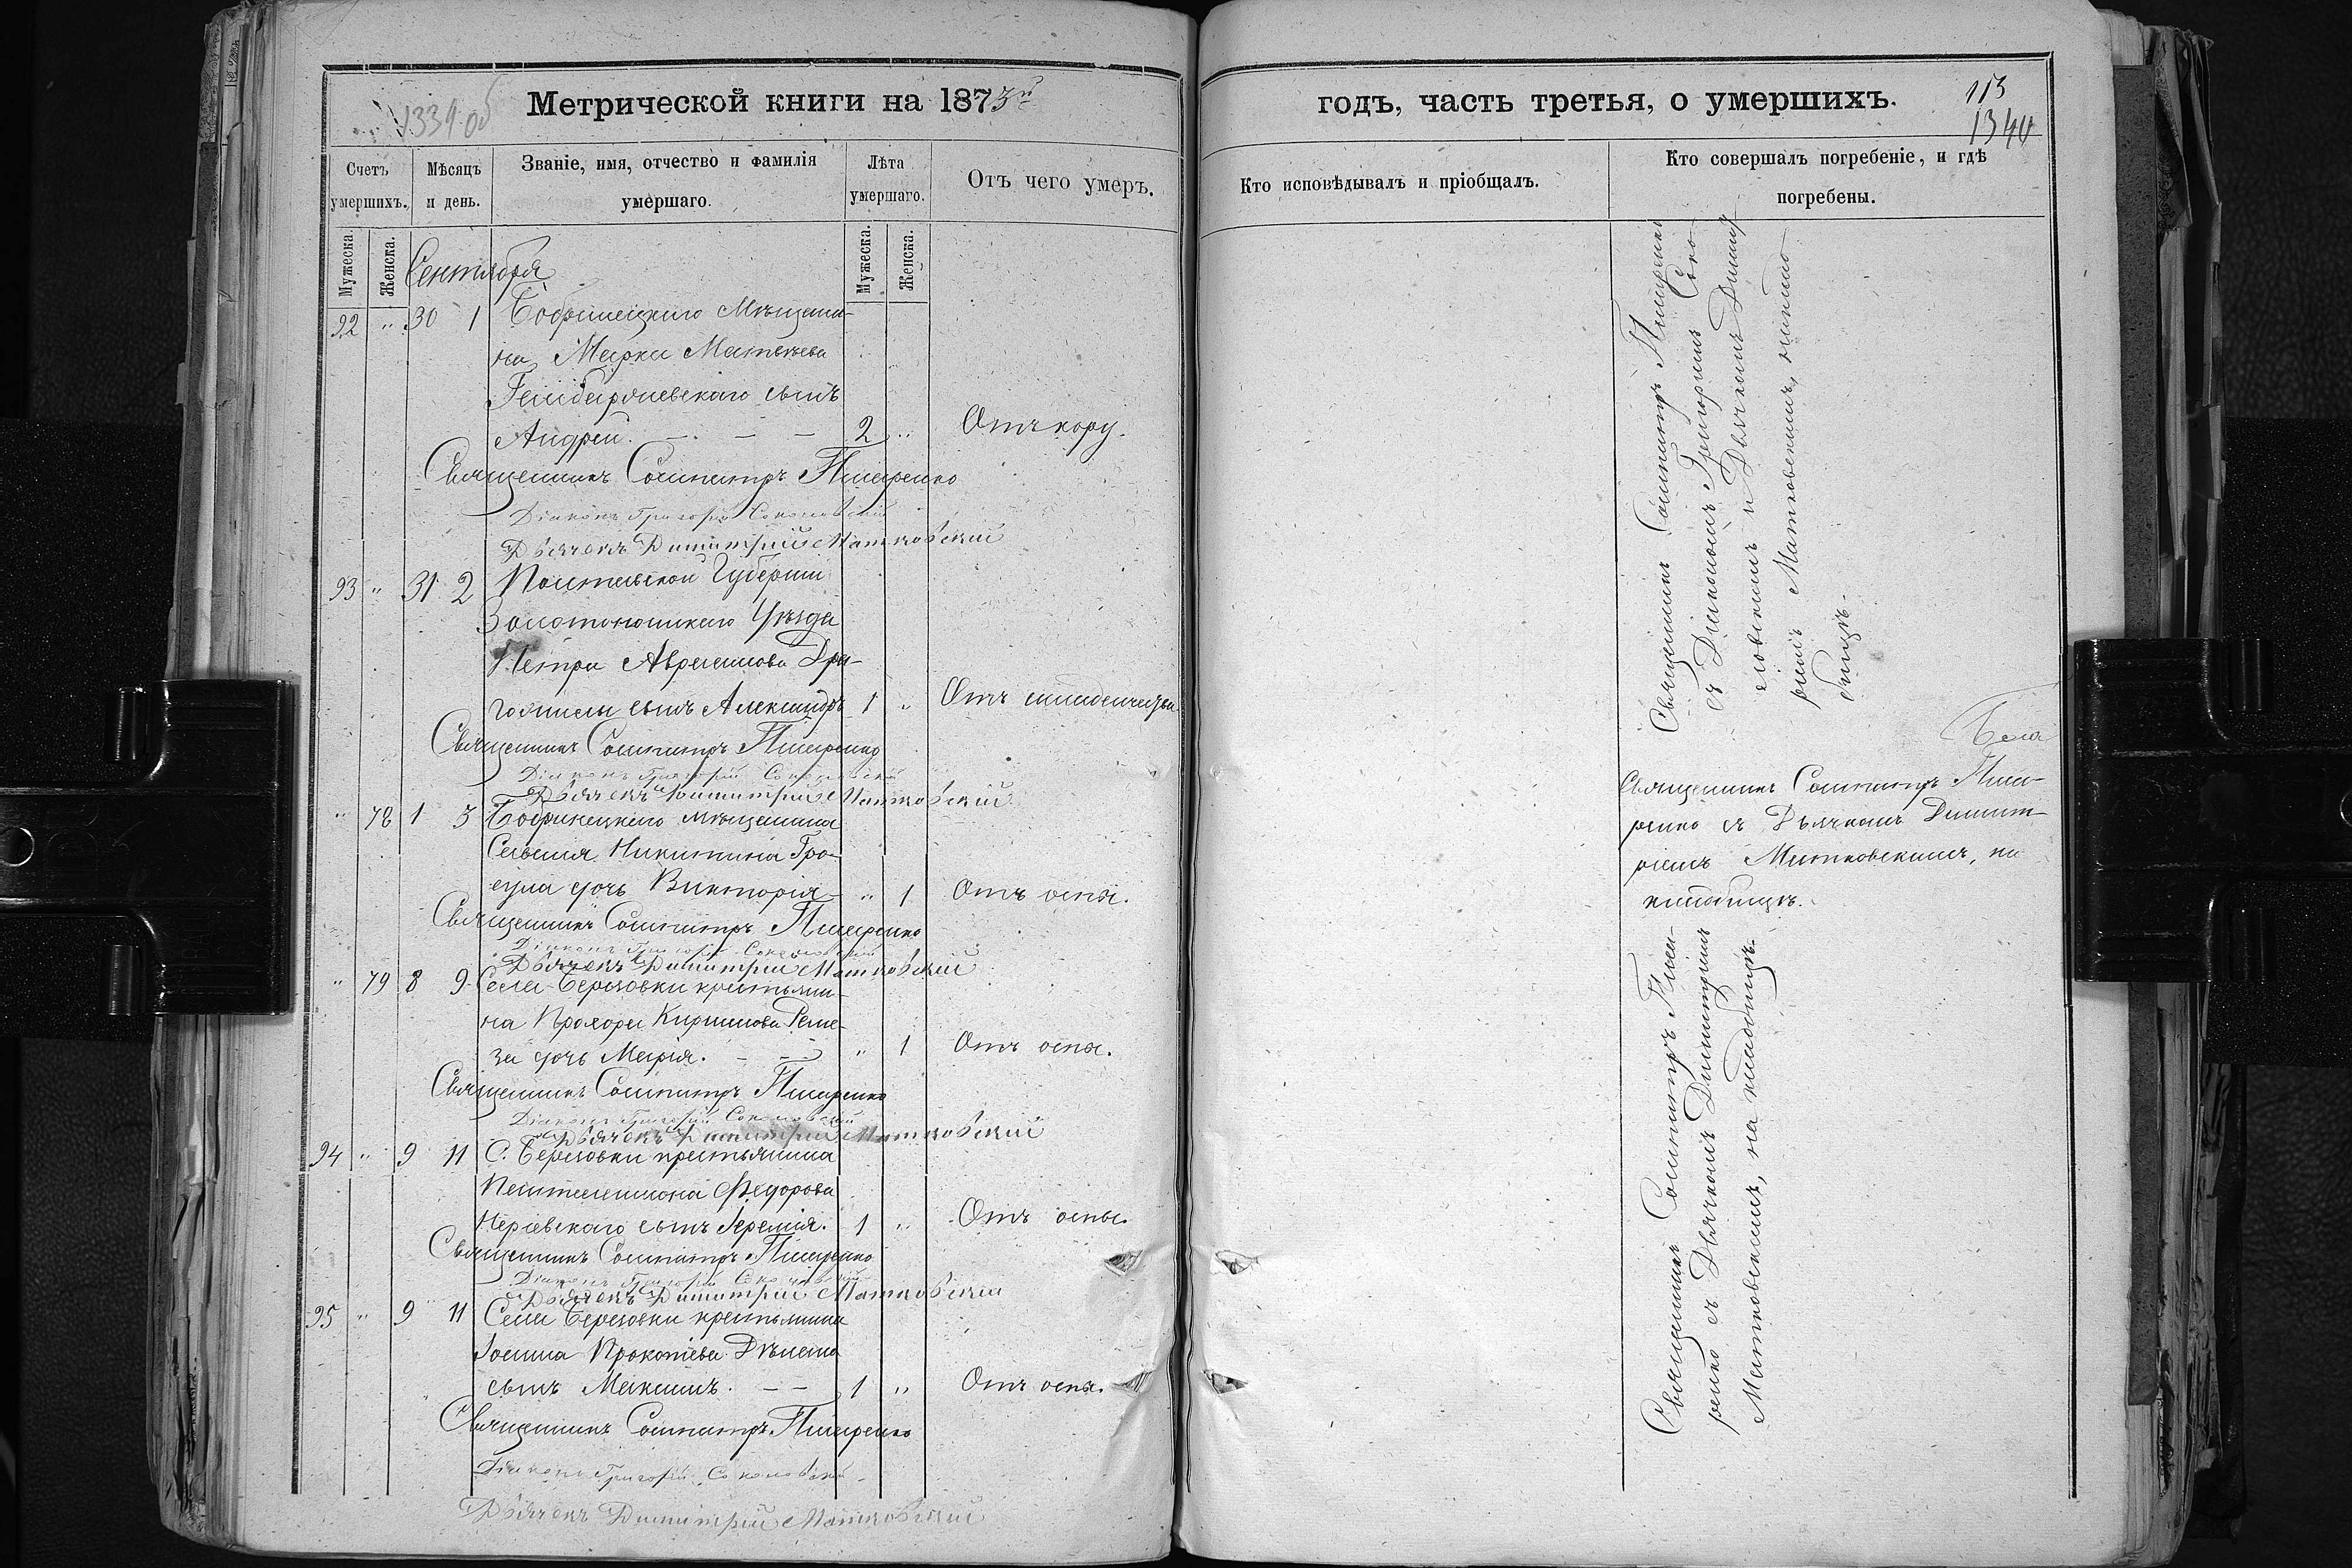 1339 об
Метрической книги на 1873й
годъ, часть третья, о умершихъ.
113
1340
Счетъ умершихъ.
Мѣсяцъ и день.
Званіе, имя, отчество и фамилія умершаго.
Лѣта умершаго.
Отъ чего умеръ.
Кто исповѣдывалъ и пріобщалъ.
Кто совершалъ погребеніе, и гдѣ погребены.
Мужеска.
Женска.
Мужеска.
Женска.
Сентября
92 " 30 1 Бобринецкаго Мѣщани-
на Марка Матвѣева
сынъ
Андрей. — — — 2 " Отъ кору.
Священникъ Сосипатръ Писаренко
Діаконъ Григорій Соколовскій
Дьячекъ Димитрій Матковскій
93 " 31 2 Полтавской Губерніи
Золотоношскаго Уѣзда
Петра Аврамова Дра-
сынъ Александръ 1 " Отъ
Священникъ Сосипатръ Писаренко
Діаконъ Григорій Соколовскій
Дьячекъ Димитрій Матковскій
" 78 1 3 Бобринецкаго мѣщанина
Савелія Никитина Гро-
сула дочь Викторія " 1 Отъ оспы.
Священникъ Сосипатръ Писаренко
Діаконъ Григорій Соколовскій
Дьячекъ Димитрій Матковскій
" 79 8 9 Села Березовки крестьяни-
на Прохора Кирилова Реме-
за дочь Марія. — — " 1 Отъ оспы.
Священникъ Сосипатръ Писаренко
Діаконъ Григорій Соколовскій
Дьячекъ Димитрій Матковскій
94 " 9 11 С. Березовки крестьянина
Пантелеимона Федорова
сынъ Іеремія. 1 " Отъ оспы.
Священникъ Сосипатръ Писаренко
Діаконъ Григорій Соколовскій
Дьячекъ Димитрій Матковскій
95 " 9 11 Села Березовки крестьянина
Іоанна Прокопіева
сынъ Максимъ. — — 1 " Отъ оспы.
Священникъ Сосипатръ Писаренко
Діаконъ Григорій Соколовскій
Дьячекъ Димитрій Матковскій
Священникъ Сосипатръ Писаренко
съ Діакономъ Григоріемъ Соко-
ловскимъ и Дьячкомъ Димит-
ріемъ Матковскимъ, на клад-
бищѣ.
Священникъ Сосипатръ Писа-
ренко съ Дьячкомъ Димит-
ріемъ Матковскимъ, на
кладбищѣ.
Священникъ Сосипатръ Писа-
ренко съ Дьячкомъ Димитріемъ
Матковскимъ, на кладбищѣ.